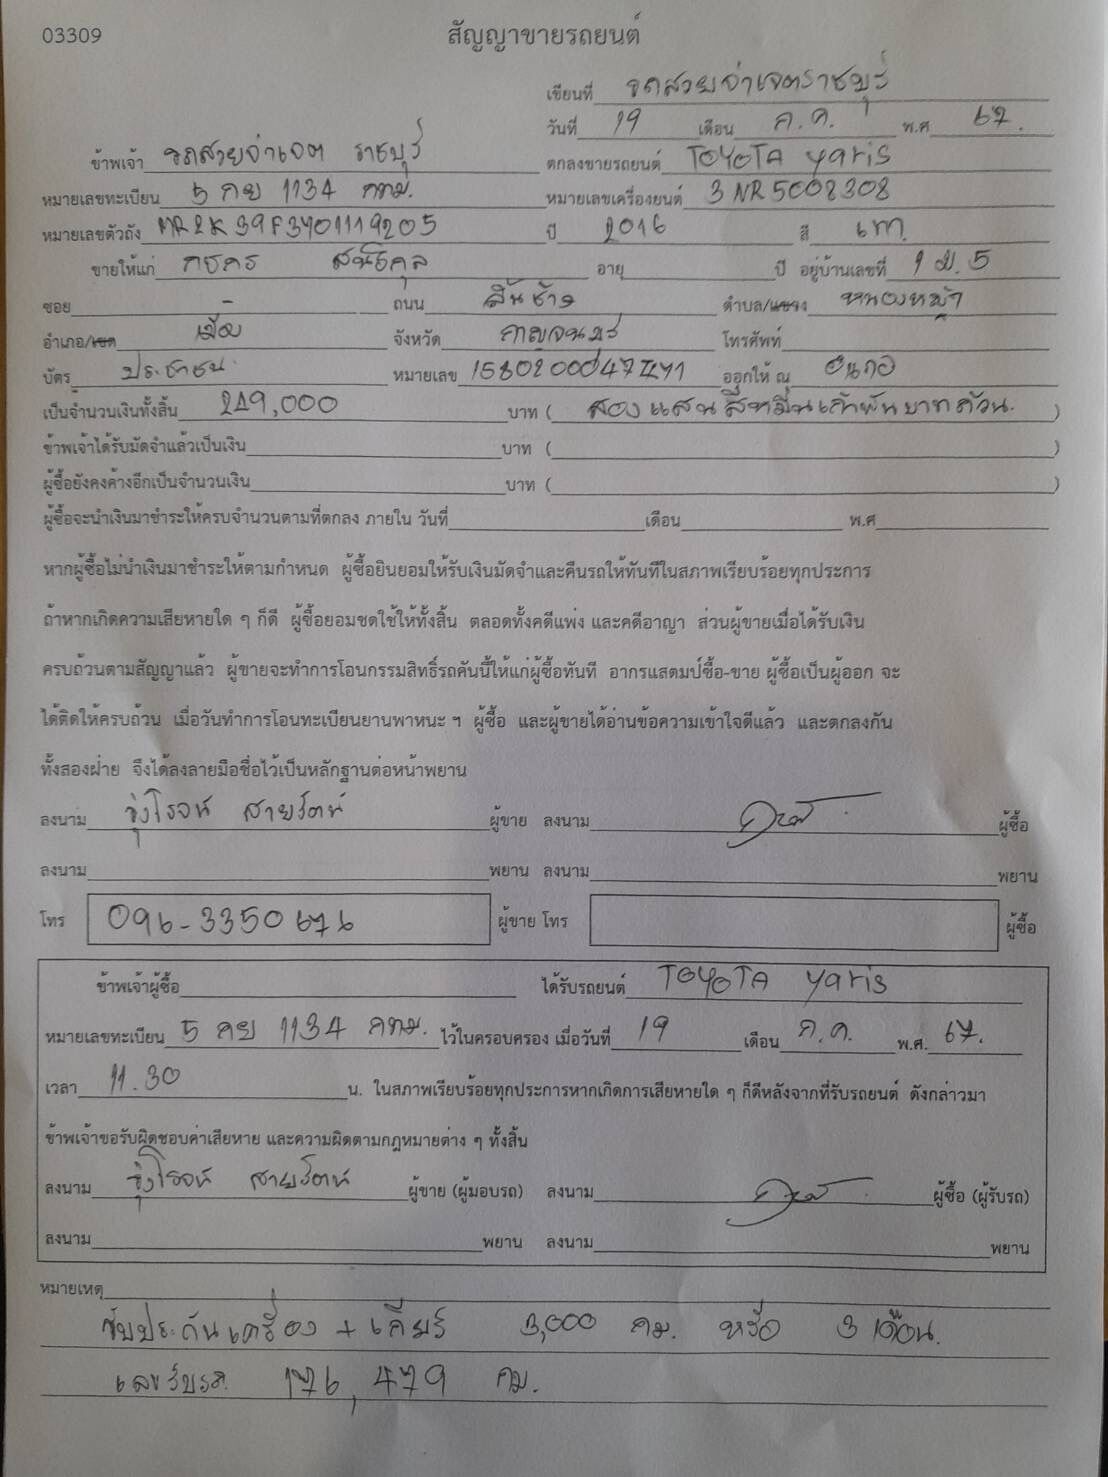 03309
สัญญาขายรถยนต์
เขียนที่ รถสวยจ่าเจตราชบุรี
วันที่ 19 เดือน ก.ค. พ.ศ 67.
ข้าพเจ้า รถสวยจ่าเจต ราชบุรี ตกลงขายรถยนต์ TOYOTA yaris
หมายเลขทะเบียน 5 กย 1134 กทม. หมายเลขเครื่องยนต์ 3NR5008308
หมายเลขตัวถัง MR2K39F3401119205 ปี 2016 สี เทา
ขายให้แก่ อายุ ปี อยู่บ้านเลขที่ 1 ม.5
ซอย - ถนน ตำบล/แขวง หนองหญ้า
อำเภอ/เขต เมือง จังหวัด กาญจนบุรี โทรศัพท์
บัตร ประชาชน หมายเลข ออกให้ ณ
เป็นจำนวนเงินทั้งสิ้น 249,000 บาท ( สองแสนสี่หมื่นเก้าพันบาทถ้วน. )
ข้าพเจ้าได้รับมัดจำแล้วเป็นเงิน บาท ( )
ผู้ซื้อยังคงค้างอีกเป็นจำนวนเงิน บาท ( )
ผู้ซื้อจะนำเงินมาชำระให้ครบจำนวนตามที่ตกลง ภายใน วันที่ เดือน พ.ศ
หากผู้ซื้อไม่นำเงินมาชำระให้ตามกำหนด ผู้ซื้อยินยอมให้รับเงินมัดจำและคืนรถให้ทันทีในสภาพเรียบร้อยทุกประการ
ถ้าหากเกิดความเสียหายใด ๆ ก็ดี ผู้ซื้อยอมชดใช้ให้ทั้งสิ้น ตลอดทั้งคดีแพ่ง และคดีอาญา ส่วนผู้ขายเมื่อได้รับเงิน
ครบถ้วนตามสัญญาแล้ว ผู้ขายจะทำการโอนกรรมสิทธิ์รถคันนี้ให้แก่ผู้ซื้อทันที อากรแสตมป์ซื้อ-ขาย ผู้ซื้อเป็นผู้ออก จะ
ได้ติดให้ครบถ้วน เมื่อวันทำการโอนทะเบียนยานพาหนะ ฯ ผู้ซื้อ และผู้ขายได้อ่านข้อความเข้าใจดีแล้ว และตกลงกัน
ทั้งสองฝ่าย จึงได้ลงลายมือชื่อไว้เป็นหลักฐานต่อหน้าพยาน
ลงนาม รุ่งโรจน์ สายรัตน์ ผู้ขาย ลงนาม ผู้ซื้อ
ลงนาม พยาน ลงนาม พยาน
โทร 096-3350676 ผู้ขาย โทร ผู้ซื้อ
ข้าพเจ้าผู้ซื้อ ได้รับรถยนต์ TOYOTA yaris
หมายเลขทะเบียน 5 กย 1134 กทม. ไว้ในครอบครอง เมื่อวันที่ 19 เดือน ก.ค. พ.ศ. 67.
เวลา 11.30 น. ในสภาพเรียบร้อยทุกประการหากเกิดการเสียหายใด ๆ ก็ดีหลังจากที่รับรถยนต์ ดังกล่าวมา
ข้าพเจ้าขอรับผิดชอบค่าเสียหาย และความผิดตามกฎหมายต่าง ๆ ทั้งสิ้น
ลงนาม รุ่งโรจน์ สายรัตน์ ผู้ขาย (ผู้มอบรถ) ลงนาม ผู้ซื้อ (ผู้รับรถ)
ลงนาม พยาน ลงนาม พยาน
หมายเหตุ
รับประกันเครื่อง + เกียร์ 3,000 กม. หรือ 3 เดือน.
176,479 กม.